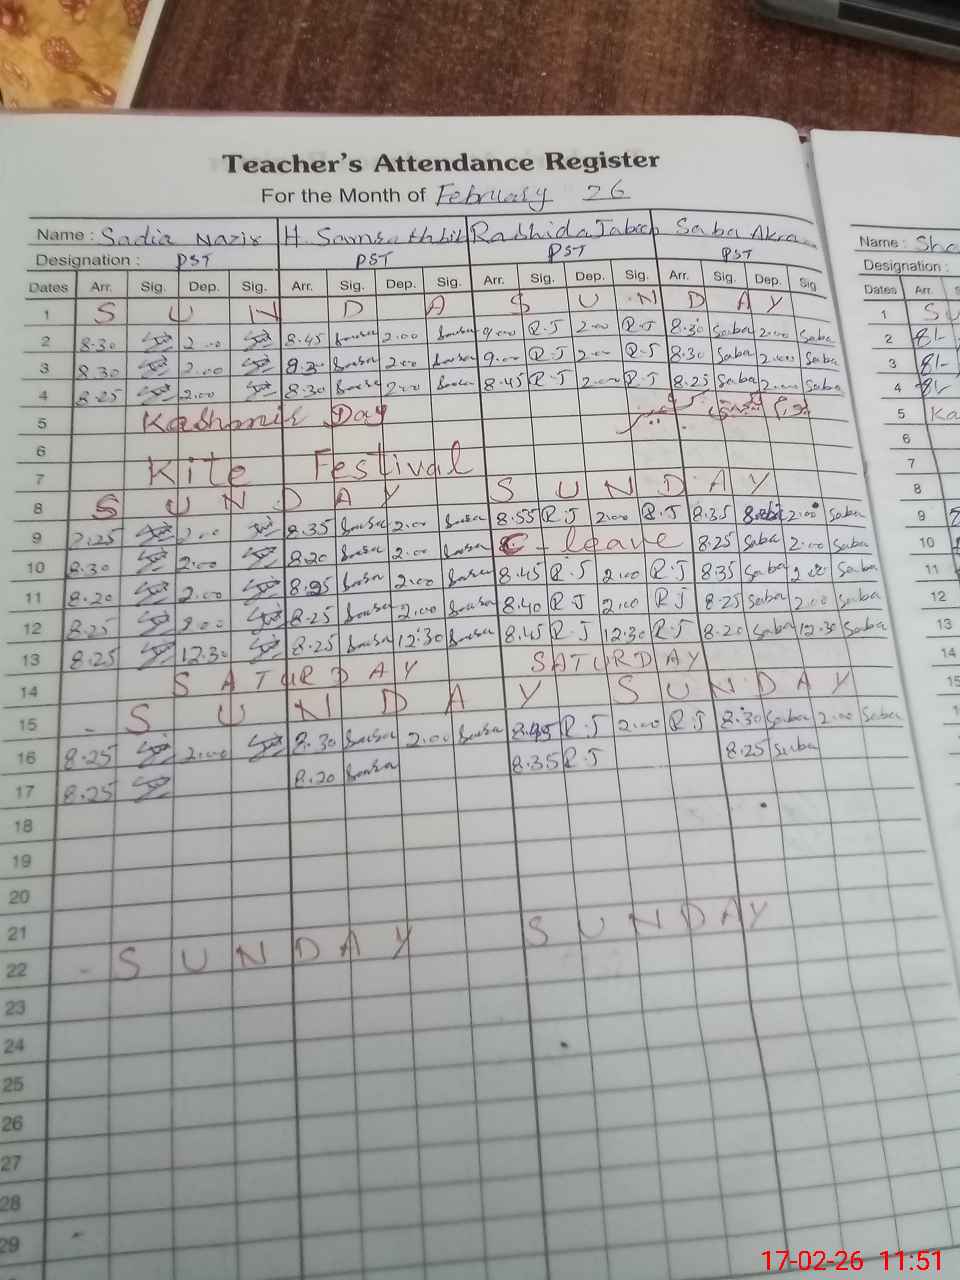 Teacher's Attendance Register
For the Month of February 26
Name : Sadia Nazir H. Rashida Saba Akram Name : Sha
Designation : PST PST PST PST Designation :
Dates Arr. Sig. Dep. Sig. Arr. Sig. Dep. Sig. Arr. Sig. Dep. Sig. Arr. Sig. Dep. Sig Dates Arr. S
1 S U N D A S U N D A Y 1 SU
2 8.30 2.00 8.45 2.00 9.00 R.J 2.00 R.J 8.30 Saba 2.00 Saba 2 8/-
3 8.30 2.00 8.30 2.00 9.00 R.J 2.00 R.J 8.30 Saba 2.00 Saba 3 8/-
4 8.25 2.00 8.30 2.00 8.45 R.J 2.00 R.J 8.25 Saba 2.00 Saba 4 8/-
5 Kashmir Day یوم یکجہتی کشمیر 5 Ka
6 6
7 Kite Festival 7
8 S U N D A Y S U N D A Y 8
9 2.00 8.35 2.00 8.55 R.J 2.00 R.J 8.35 Saba 2.00 Saba 9
10 8.30 2.00 8.20 2.00 C - leave 8.25 Saba 2.00 Saba 10
11 8.20 2.00 2.00 8.45 R.J 2.00 R.J 8.35 Saba 2.00 Saba 11
12 8.25 2.00 8.25 2.00 8.40 R.J 2.00 R.J 8.25 Saba 2.00 Saba 12
13 8.25 12.30 8.25 12.30 8.45 R.J 12.30 R.J 8.20 Saba 12.30 Saba 13
14 S A T U R D A Y SATURDAY 14
15 - S U N D A Y S U N D A Y 15
16 8.25 2.00 8.30 2.00 8.45 R.J 2.00 R.J 8.30 Saba 2.00 Saba 1
17 8.25 8.20 8.35 R.J 8.25 Saba
18
19
20
21
22 - S U N D A Y S U N D A Y
23
24
25
26
27
28
29
17-02-26 11:51